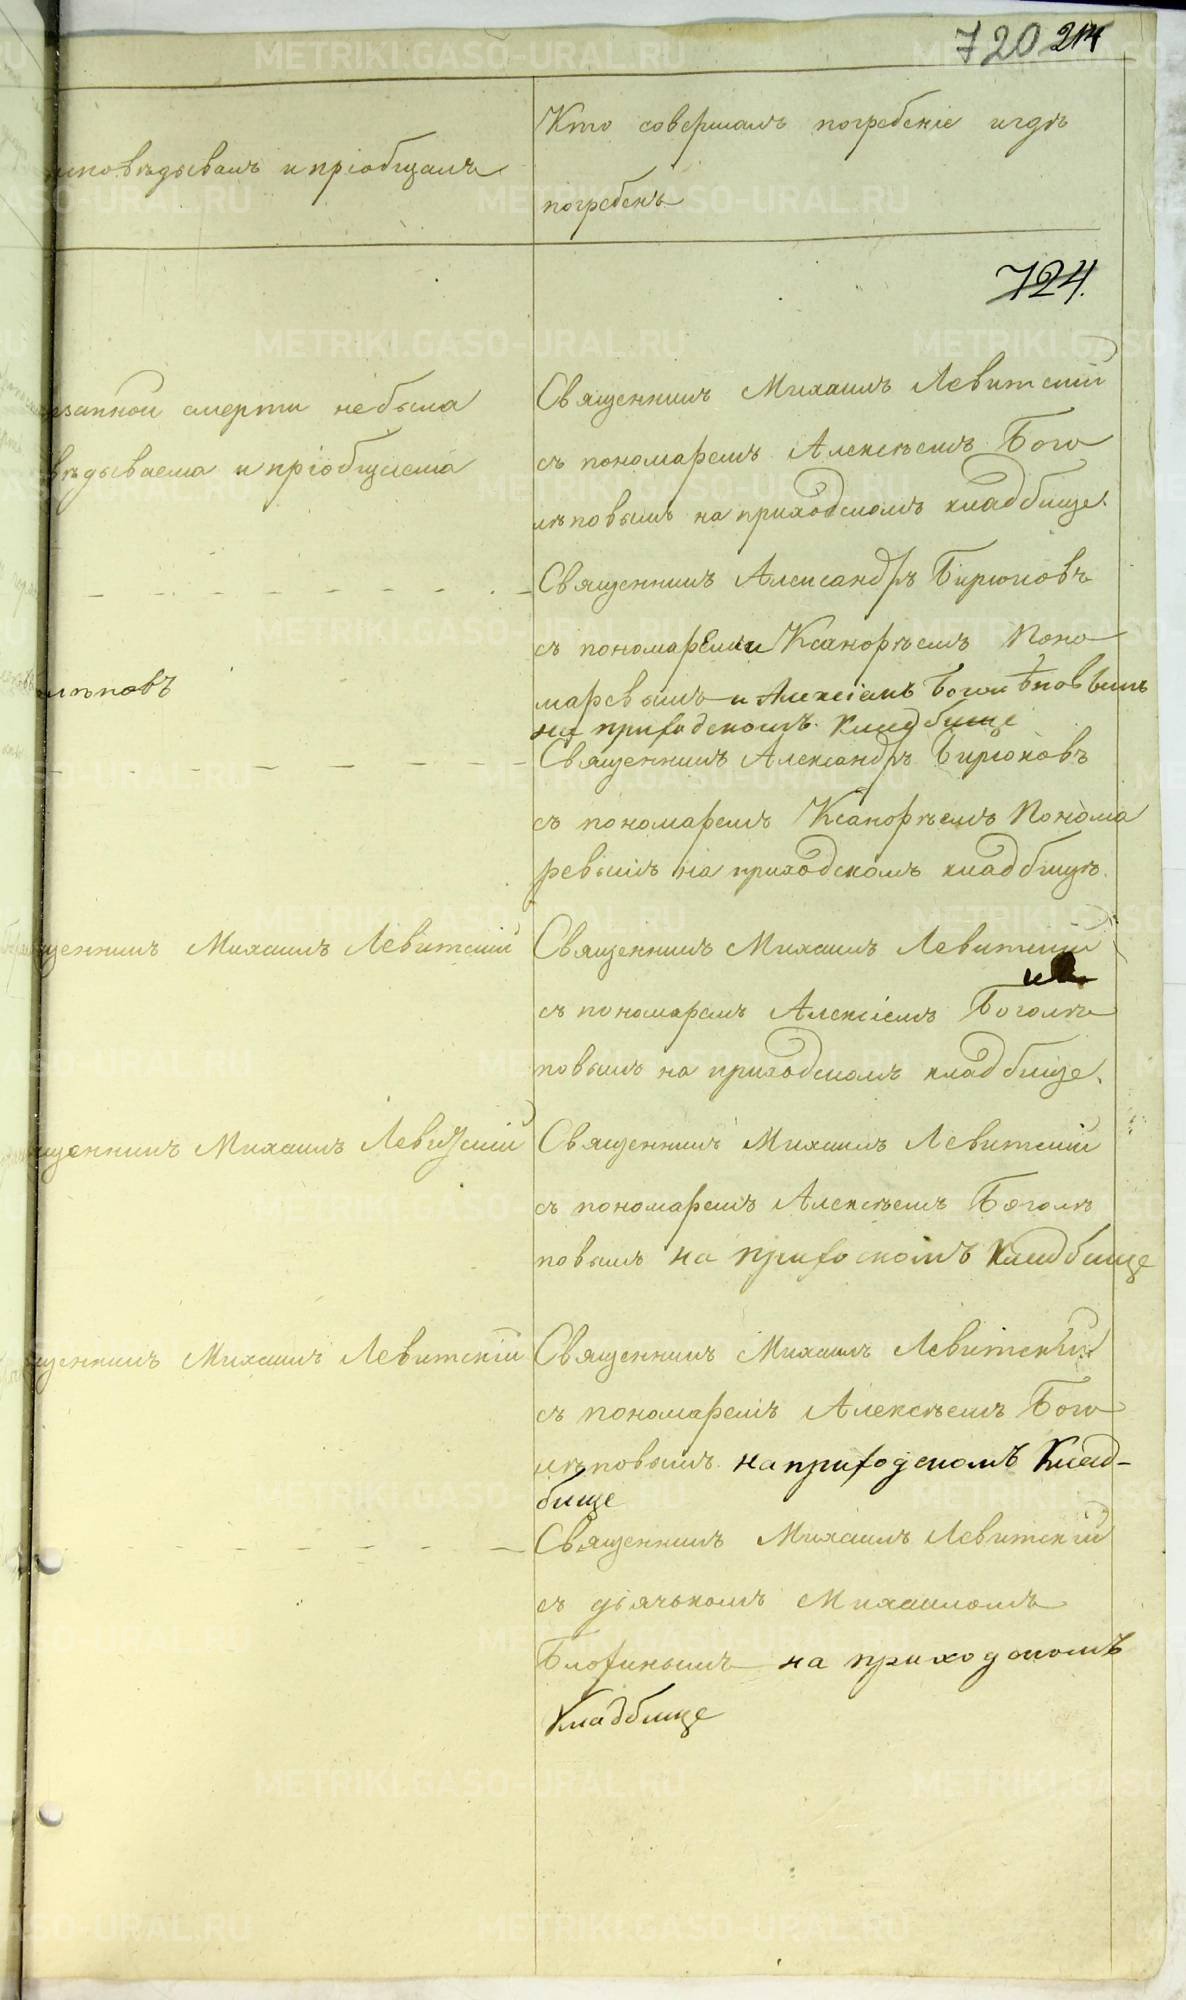 720 214
исповѣдывалъ и пріобщалъ
Кто совершалъ погребеніе и гдѣ
погребенъ
724.
незапной смерти не была
вѣдываема и пріобщаема
Священникъ Михаилъ Левитскій
съ пономаремъ Алексѣемъ Бого
лѣповымъ на приходскомъ кладбище.
Священникъ Александръ Бирюковъ
съ пономарями Ксанорѣемъ Поно
маревымъ и Алексіемъ Боголѣповымъ
на приходскомъ кладбище
лѣповъ
Священникъ Александръ Бирюковъ
съ пономаремъ Ксанорѣемъ Понома
ревымъ на приходскомъ кладбищѣ.
щенникъ Михаилъ Левитскій
Священникъ Михаилъ Левитскій
съ пономаремъ Алексіемъ Боголѣ
повымъ на приходскомъ кладбище.
щенникъ Михаилъ Левитскій
Священникъ Михаилъ Левитскій
съ пономаремъ Алексѣемъ Боголѣ
повымъ на приходскомъ кладбище
щенникъ Михаилъ Левитскій
Священникъ Михаилъ Левитскій
съ пономаремъ Алексѣемъ Бого
лѣповымъ на приходскомъ клад-
бище
Священникъ Михаилъ Левитскій
съ дьячькомъ Михаиломъ
Блохинымъ на приходскомъ
кладбище
METRIKI.GASO-URAL.RU